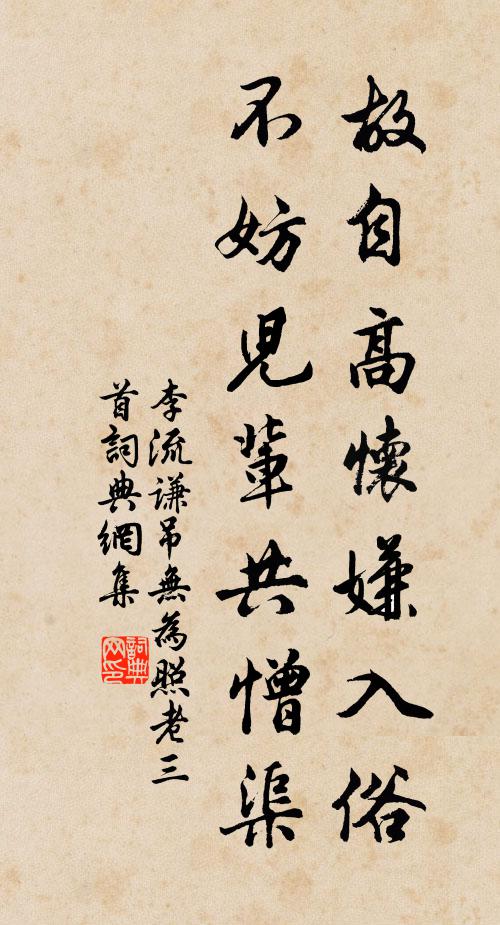 故自高懷嫌入俗
不妨兒輩共憎渠
李流謙吊無為照老三
首詞典網集
詞典网印